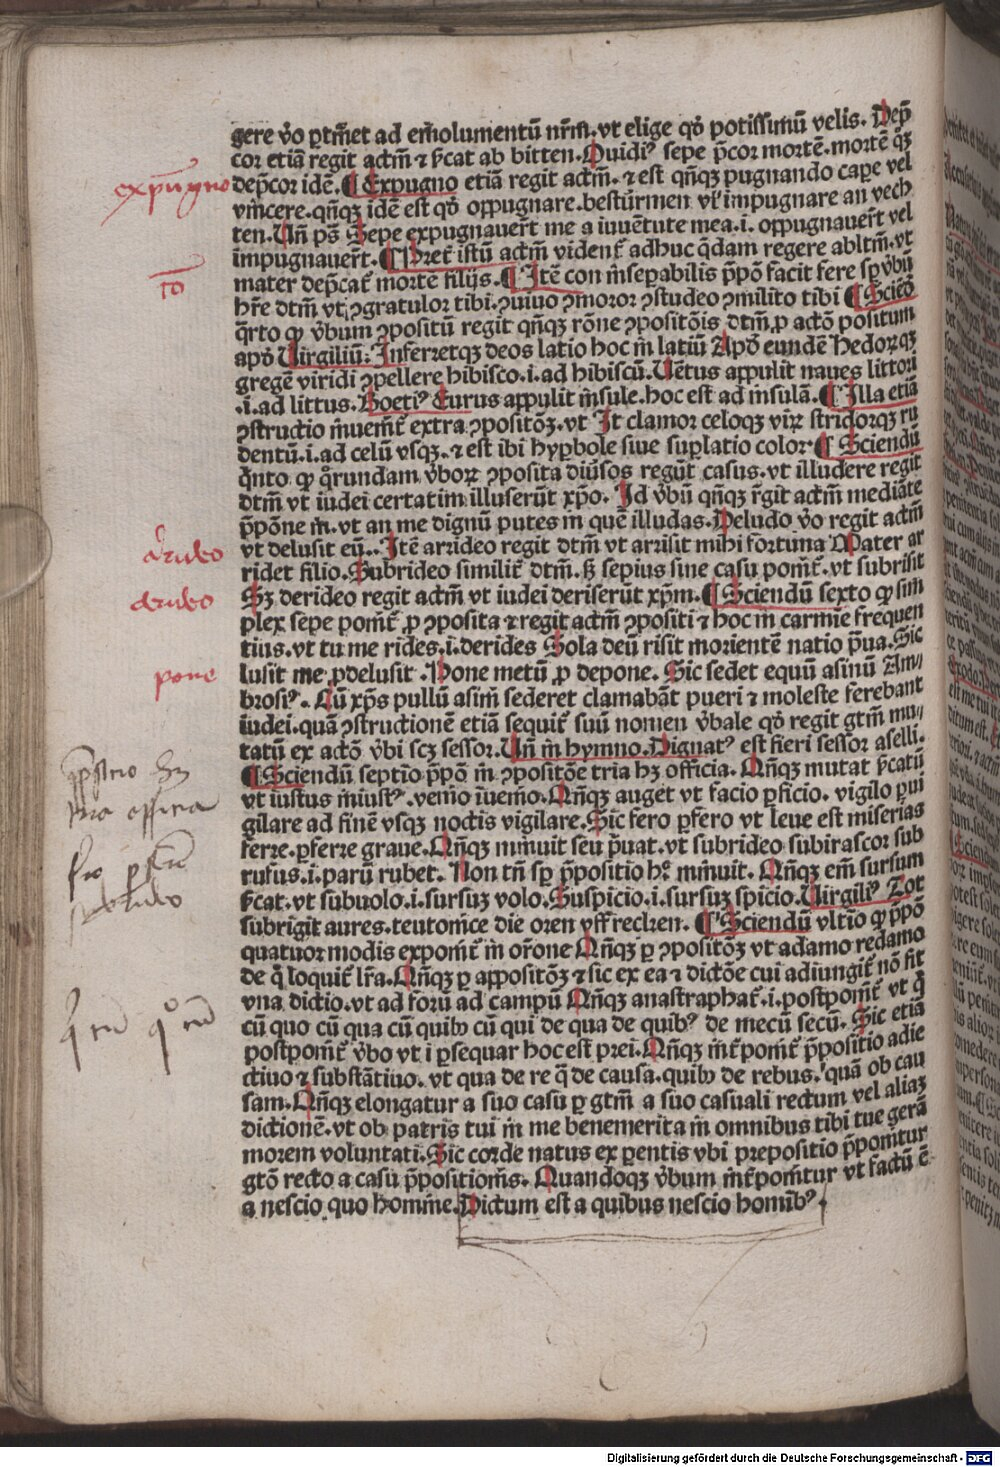 gere v̉o ꝑtinet ad emolumentū nr̄m. vt elige qd̓ potissimū velis. Dep̄
cor etiā regit actm̄ ⁊ ſ̓cat ab bitten. Quidiꝰ sepe p̄cor mortē. mortē qꝫ
dep̄cor idē. ¶ Expugno etiā regit actm̄. ⁊ est qn̄qꝫ pugnando cape vel
expūgno
vincere. qn̄qꝫ idē est qd̓ oppugnare. bestürmen vl̓ impugnare an vech
ten. Vn̄ ps̄ Sepe expugnauer̄t me a iuuētute mea. i. oppugnauer̄t vel
impugnauer̄t. ¶ Pret̓ istū actm̄ vident̓ adhuc q̄dam regere abltm̄. vt
mater dep̄cat̓ mortē filijs. ¶ Itē con inseꝑabilis p̄pō facit fere sꝑ v̓bū
hr̄e dtm̄ vt ꝯgratulor tibi. ꝯuiuo ꝯmoror ꝯstudeo ꝯmilito tibi ¶ Sciēd̓
q̄rto ꝙ v̓bum ꝯpositū regit qn̄qꝫ rōne ꝯpositōis dtm̄ ꝓ actō positum
apd̓ Virgiliū. Inferretqꝫ deos latio hoc in latiū Apd̓ eundē Hedorqꝫ
gregē viridi ꝯpellere hibisco. i. ad hibiscū. Vētus appulit naues littori
.i. ad littus. Boetiꝰ Eurus appulit insule. hoc est ad insulā. ¶ Illa etiā
ꝯstructio inuenit̓ extra ꝯpositōꝫ. vt It clamor celoqꝫ virꝫ stridorqꝫ ru
dentū. i. ad celū vsqꝫ. ⁊ est ibi hyꝑbole siue suꝑlatio color ¶ Sciendū
q̄nto ꝙ q̄rundam v̓borꝫ ꝯposita diūsos regūt casus. vt illudere regit
dtm̄ vt iudei certatim illuserūt xp̄o. Id v̓bū qn̄qꝫ r̄git actm̄ mediāte
p̄pōne in. vt an me dignū putes in quē illudas. Deludo v̓o regit actm̄
vt delusit eū. Itē arrideo regit dtm̄ vt arrisit mihi fortuna Mater ar
arrideo
ridet filio. Subrideo similit̓ dtm̄. sꝫ sepius sine casu ponit̓. vt subrisit
Sꝫ derideo regit actm̄ vt iudei deriserūt xp̄m. ¶ Sciendū sexto ꝙ sim
derideo
plex sepe ponit̓ ꝓ ꝯposita ⁊ regit actm̄ ꝯpositi ⁊ hoc in carmīe frequen
tius. vt tu me rides. i. derides Sola deū risit morientē natio ꝓua. Sic
lusit me ꝓ delusit. Pone metū ꝓ depone. Sic sedet equū asinū Am⸗
pone
brosiꝰ. Cū xp̄s pullū asini sederet clamabāt pueri ⁊ moleste ferebant
iudei. quā ꝯstructionē etiā sequit̓ suū nomen v̓bale qd̓ regit gtm̄ mu⸗
tatū ex actō v̓bi scꝫ sessor. Vn̄ in hymno. Dignatꝰ est fieri sessor aselli.
¶ Sciendū septio p̄pō in ꝯpositōe tria hꝫ officia. Qn̄qꝫ mutat ſ̓catū
vt iustus iniustꝰ. venio iuenio. Qn̄qꝫ auget vt facio ꝑficio. vigilo ꝑui
tria officia
gilare ad finē vsqꝫ noctis vigilare. Sic fero ꝑfero vt leue est miserias
ferre. ꝑferre graue. Qn̄qꝫ minuit seu p̄uat. vt subrideo subirascor sub
rufus. i. parū rubet. Non tn̄ sꝑ p̄positio hꝰ minuit. Qn̄qꝫ em̄ sursum
ſ̓cat. vt subuolo. i. sursuꝫ volo. Suspicio. i. sursuꝫ spicio. Virgiliꝰ Tot
subrigit aures. teutonice die oren vff recken. ¶ Sciendū vltio ꝙ p̄pō
quatuor modis exponit̓ in or̄one Qn̄qꝫ ꝑ ꝯpositōꝫ vt adamo redamo
de q̄ loquit̓ lr̄a. Qn̄qꝫ ꝑ appositōꝫ ⁊ sic ex ea ⁊ dictōe cui adiungit̓ nō fit
vna dictio. vt ad forū ad campū Qn̄qꝫ anastraphat̓. i. postponit̓ vt q̄
cū quo cū qua cū quibꝰ cū qui de qua de quibꝰ de mecū secū. Sic etiā
postponit̓ v̓bo vt i ꝑsequar hoc est prei. Qn̄qꝫ int̓ponit̓ p̄positio adie
ctiuo ⁊ substātiuo. vt qua de re q̄ de causa. quibꝰ de rebus. quā ob cau
sam. Qn̄qꝫ elongatur a suo casu ꝑ gtm̄ a suo casuali rectum vel aliaꝫ
dictionē. vt ob patris tui in me benemerita in omnibus tibi tue gerā
morem voluntati. Sic corde natus ex ꝑentis vbi prepositio p̄ponitur
gtō recto a casu p̄positionis. Quandoqꝫ v̓bum int̓ponitur vt factū ē
a nescio quo homine. Dictum est a quibus nescio hominibꝰ.
Digitalisierung gefördert durch die Deutsche Forschungsgemeinschaft - DFG